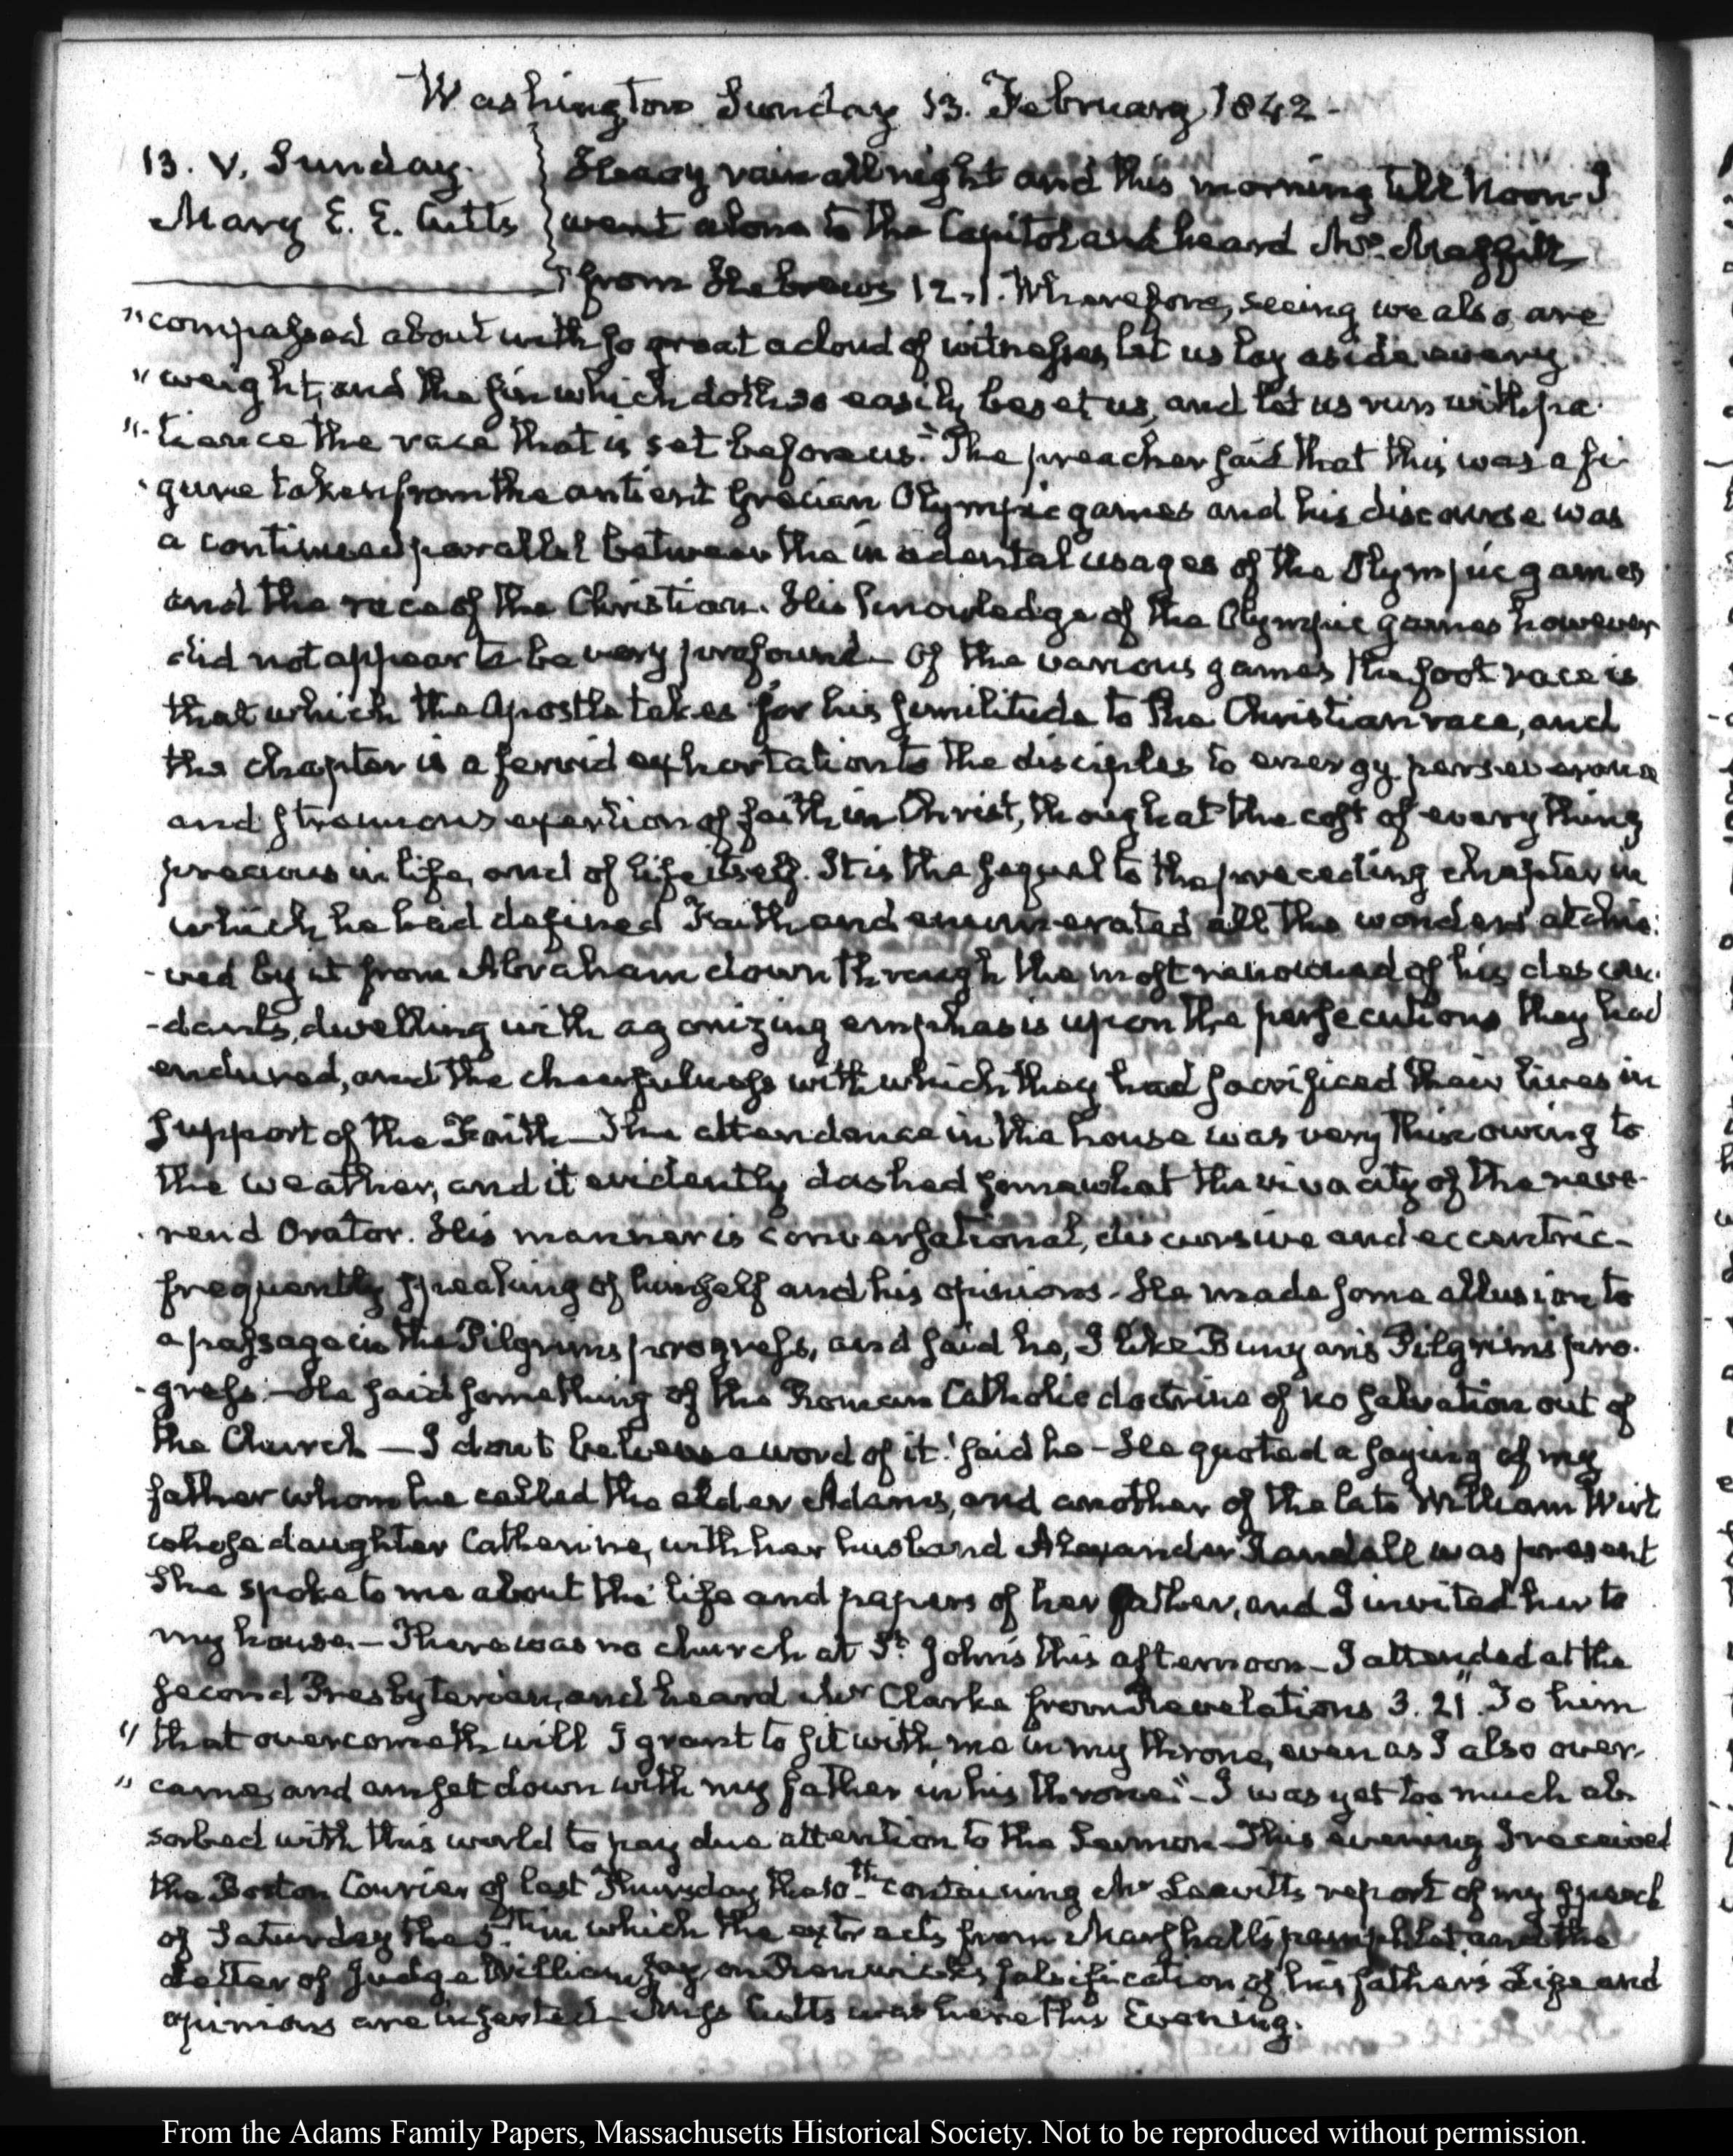 Washington Sunday 13. February 1842.
13. V. Sunday.
Mary E. E. Cutts
Heavy rain all night and this morning till Noon. I
went alone to the Capitol and heard Mr. Maffitt
from Hebrews 12.1. Wherefore, seeing we also are
"compassed about with so great a cloud of witnesses, let us lay aside every
"weight, and the sin which doth so easily beset us, and let us run with pa-
"-tience the race that is set before us." The preacher said that this was a fi-
-gure taken from the antient Grecian Olympic games and his discourse was
a continued parallel between the incidental usages of the Olympic games
and the race of the Christian. His knowledge of the Olympic games however
did not appear to be very profound- Of the various games the foot race is
that which the Apostle takes for his similitude to the Christian race, and
the chapter is a fervid exhortation to the disciples to energy perseverance
and strenuous exertion of faith in Christ, though at the cost of every thing
precious in life, and of life itself. It is the sequel to the preceding chapter in
which he had defined Faith and enumerated all the wonders atchie-
-ved by it from Abraham down through the most renowned of his descen-
-dants, dwelling with agonizing emphasis upon the persecutions they had
endured, and the chearfulness with which they had sacrificed their lives in
support of the Faith- The attendance in the house was very thin owing to
the weather, and it evidently dashed somewhat the vivacity of the reve-
-rend Orator. His manner is conversational, discursive and eccentric-
frequently speaking of himself and his opinions- He made some allusion to
a passage in the Pilgrims progress, and said he, I like Bunyan's Pilgrim's pro-
-gress.- He said something of the Roman Catholic doctrine of no salvation out of
the Church — I don't believe a word of it! said he- He quoted a saying of my
father whom he called the elder Adams, and another of the late William Wirt
whose daughter Catherine, with her husband Alexander Randall was present
She spoke to me about the life and papers of her father, and I invited her to
my house.- There was no church at St. John's this afternoon- I attended at the
second Presbyterian, and heard Mr Clarke from Revelations 3. 21 "To him
"that overcometh will I grant to sit with me in my throne, even as I also over-
"came, and am set down with my father in his throne."- I was yet too much ab-
sorbed with this world to pay due attention to the Sermon- This evening I received
the Boston Courier of last Thursday the 10th. containing Mr Leavitt's report of my speech
of Saturday the 5th. in which the extracts from Marshall's pamphlet, and the
letter of Judge William Jay on Renwick's falsification of his father's Life and
opinions are inserted- Miss Cutts was here this Evening.
From the Adams Family Papers, Massachusetts Historical Society. Not to be reproduced without permission.